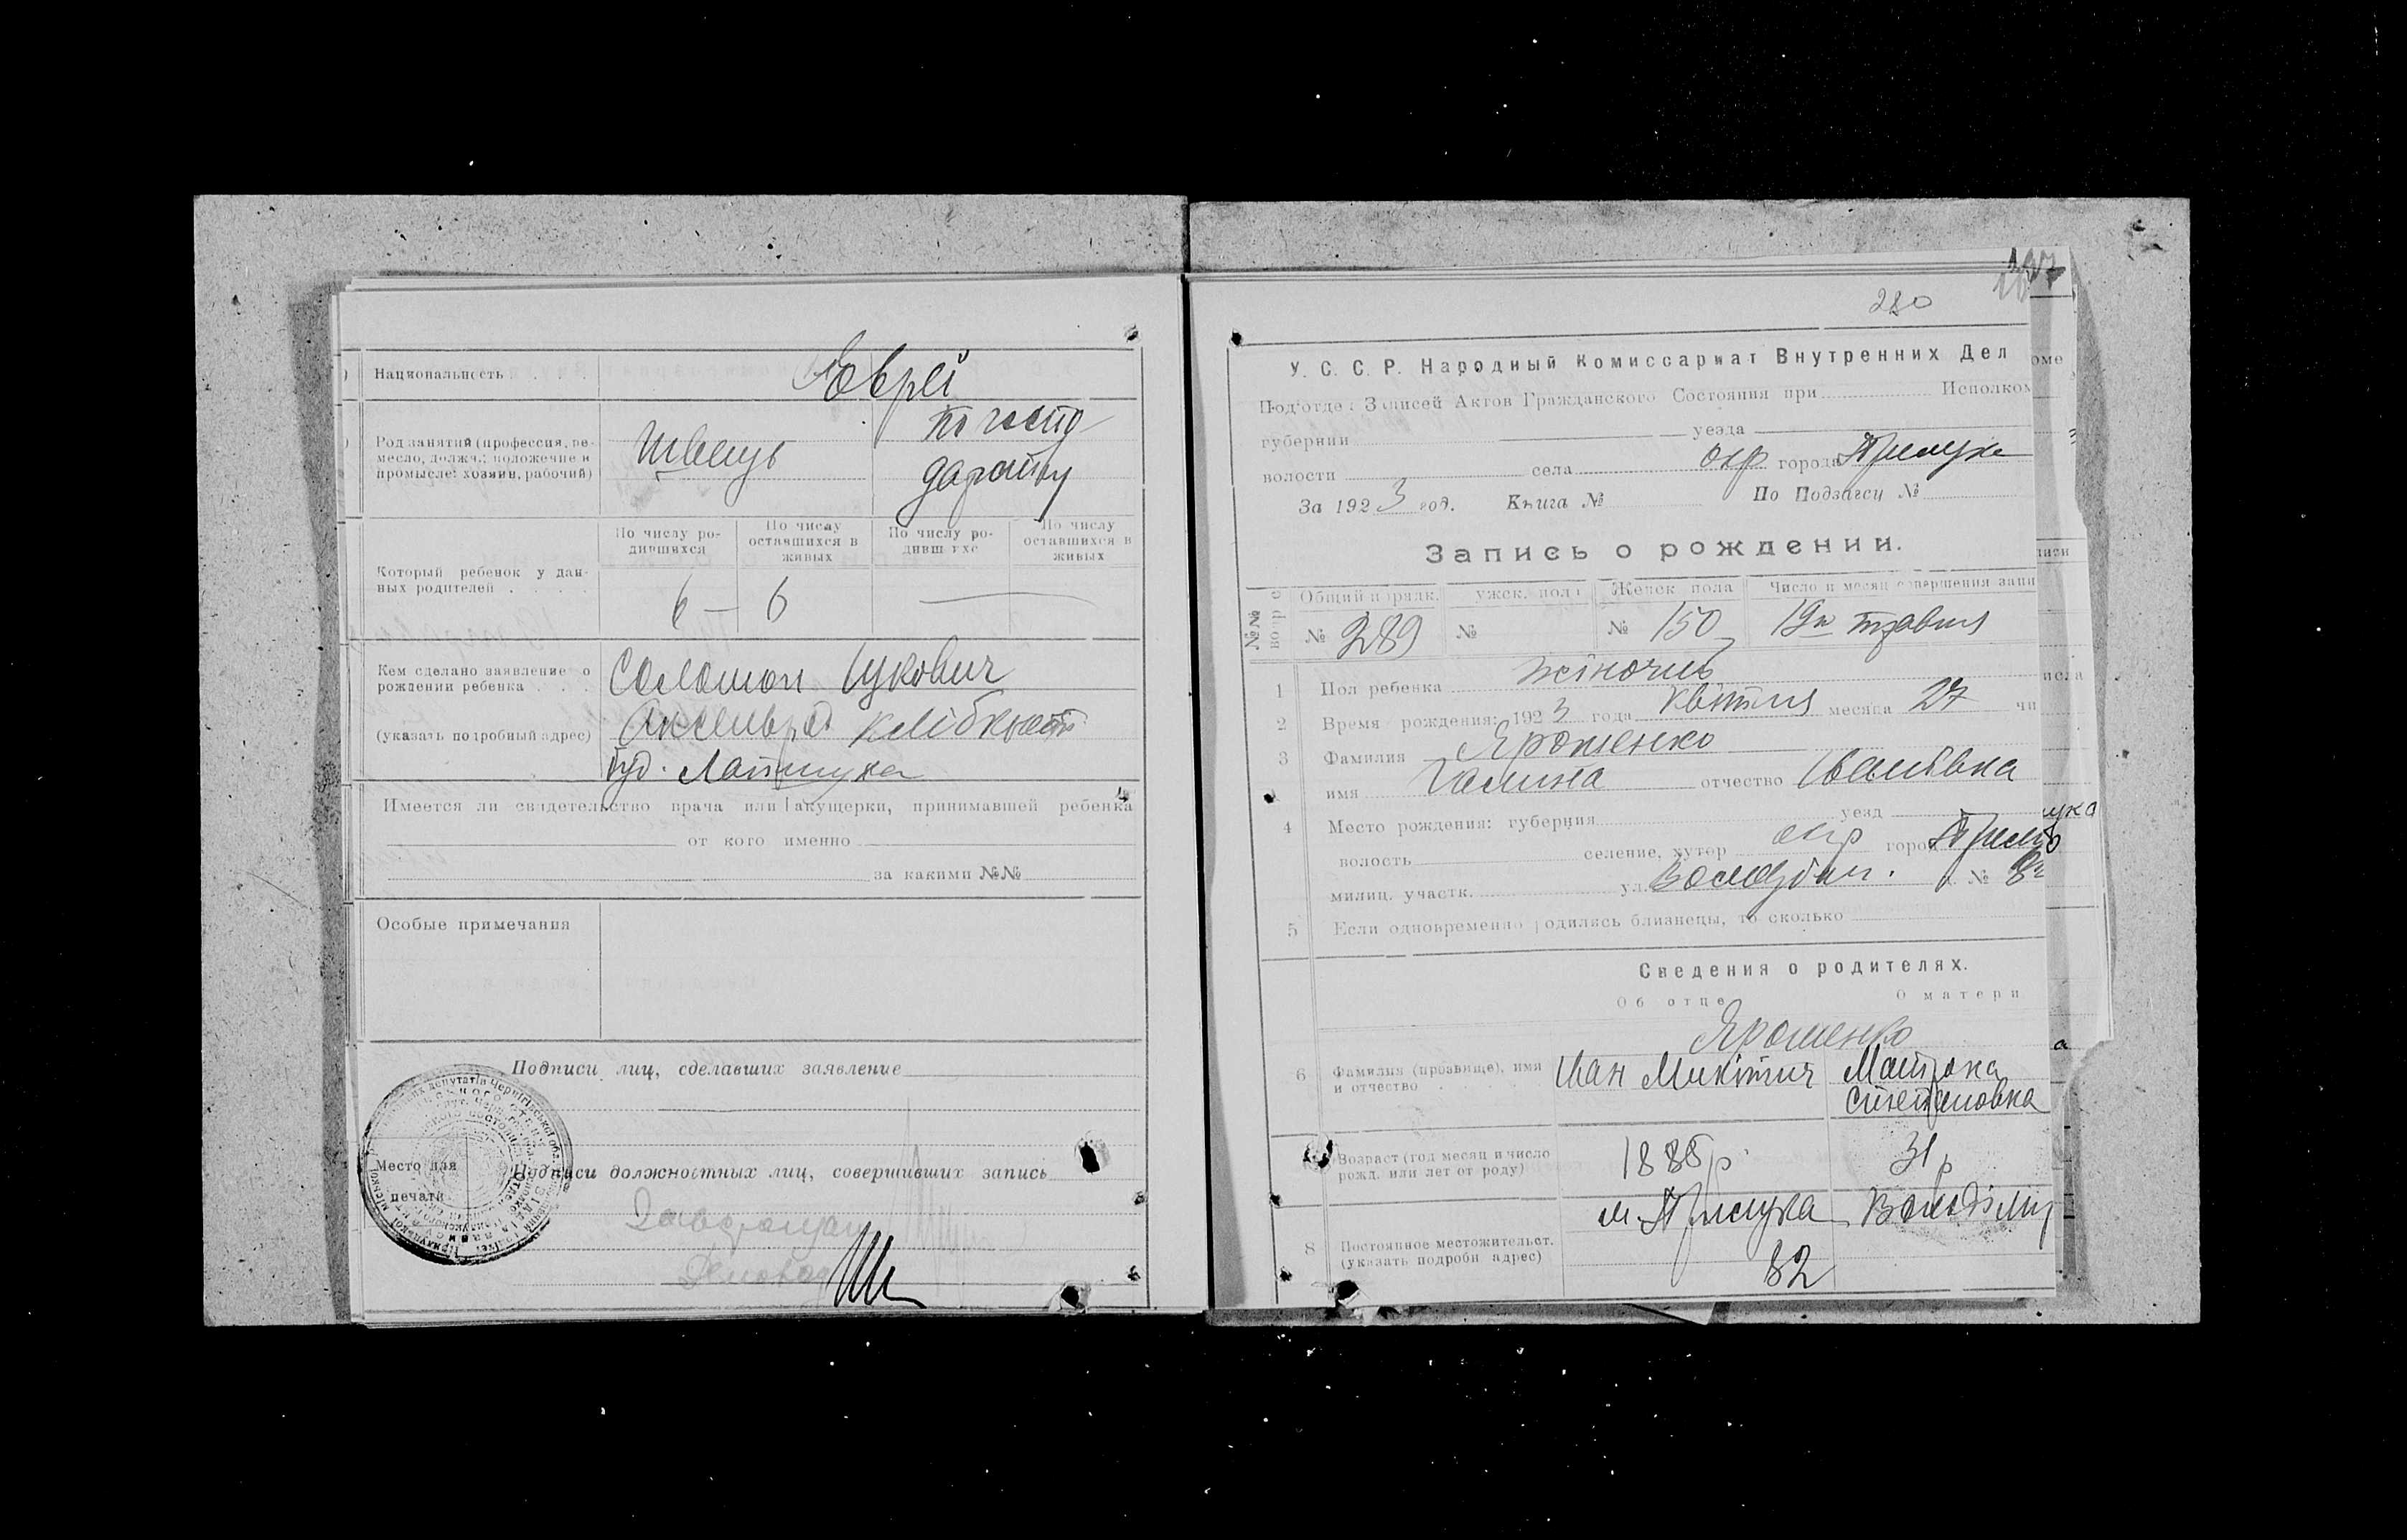 Национальность
Єврей
Род занятий (профессия, ре-
месло, должн.: положение и
промысле: хозяин, рабочий)
Швець
по госпо
дарству
По числу ро-
дившихся
По числу
оставшихся в
живых
По числу ро-
дивш ихс
По числу
оставшихся в
живых
Который ребенок у дан-
ных родителей
6 — 6
Кем сделано заявление о
рождении ребенка
(указать подробный адрес)
Соломон Ицкович
буд.
Имеется ли свидетельство врача или акушерки, принимавшей ребенка
от кого именно
за какими №№
Особые примечания
Подписи лиц, сделавших заявление
Место для
печати
Подписи должностных лиц, совершивших запись
280
У. С. С. Р. Народный Комиссариат Внутренних Дел
Подотдел Записей Актов Гражданского Состояния при Исполком
губернии уезда
волости села окр города Прилука
За 1923 год. Книга № По Подзагсу №
Запись о рождении.
№№
Общий порядк.
ужск. пол
Женск пола
Число и месяц совершения запи
№ 289
№
№ 150
19го травня
1 Пол ребенка жіночий
2 Время рождения: 1923 года Квітня месяца 27 чи
3 Фамилия Ярошенко
имя Галина отчество Іванівна
4 Место рождения: губерния уезд
волость селение, хутор окр город Прилука
милиц. участк. ул. №
5 Если одновременно родились близнецы, то сколько
Сведения о родителях.
Об отце
О матери
Ярошенко
6 Фамилия (прозвище), имя
и отчество
Иван Микітич
Мотрона
Степановна
Возраст (год месяц и число
рожд. или лет от роду)
1888 р
31 р
8 Постоянное местожительст.
(указать подробн адрес)
м. Прилука Володімир
82